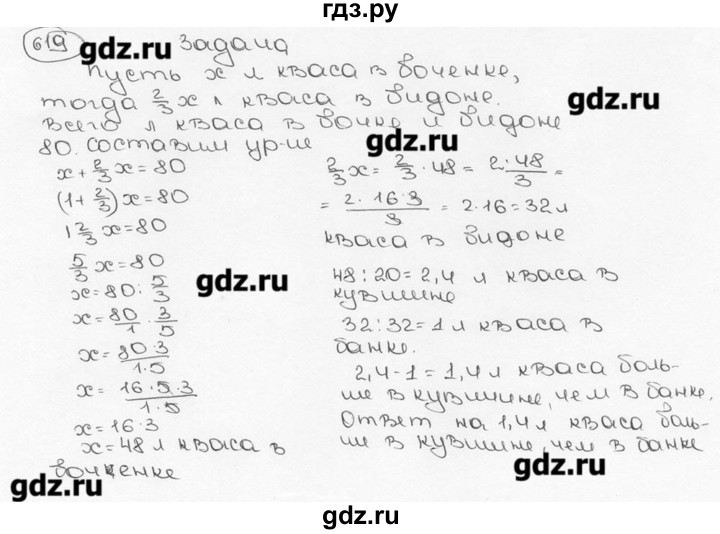 гдз.ру
619 gdz.ru Задача
Пусть x л кваса в боченке,
тогда 2/3 x л кваса в бидоне. gdz.ru
Всего л кваса в бочке и бидоне
80. Составим ур-ие gdz.ru
x + 2/3 x = 80
(1 + 2/3) x = 80
1 2/3 x = 80
5/3 x = 80
x = 80 : 5/3 gdz.ru
x = 80/1 · 3/5
x = 80·3/1·5
x = 16·5·3/1·5
x = 16·3
x = 48 л кваса в
бочкенке
gdz.ru
2/3 x = 2/3 · 48 = 2·48/3 =
= 2·16·3/3 = 2·16 = 32 л
кваса в бидоне
48 : 20 = 2,4 л кваса в
кувшине
32 : 32 = 1 л кваса в
банке.
2,4 - 1 = 1,4 л кваса боль-
ше в кувшине, чем в банке.
Ответ на 1,4 л кваса боль-
ше в кувшине, чем в банке
gdz.ru
gdz.ru